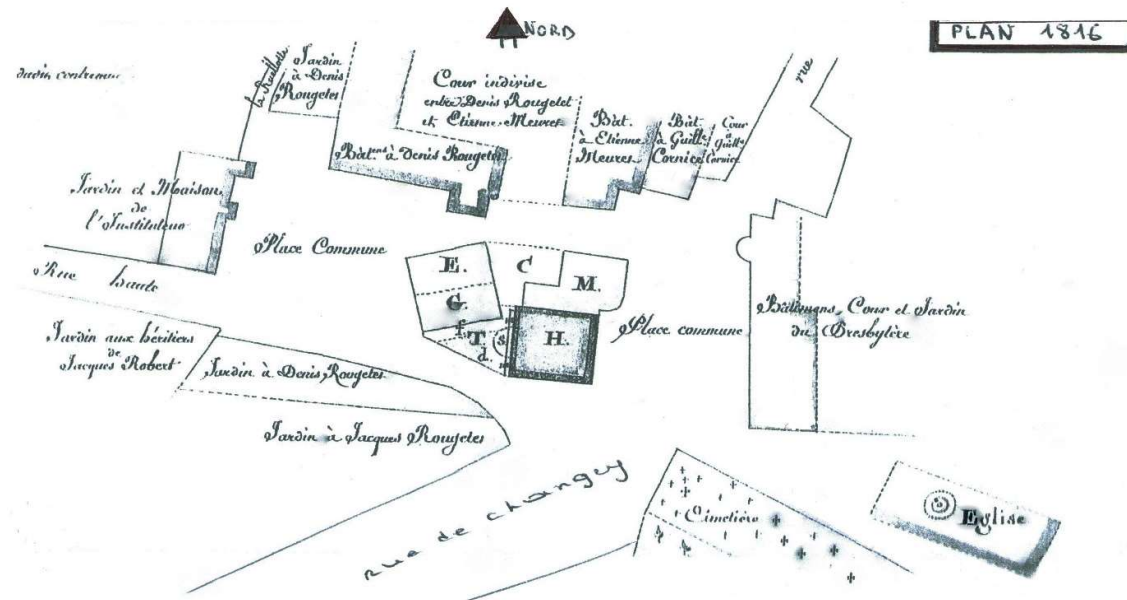 NORD
PLAN 1816
la Ruellotte
Jardin
à Denis
Rougetet
Cour indivise
entre Denis Rougetet
et Etienne Meures
Bât.
à Etienne
Meures
Bât.
à Guille
Cornice
Cour
à Guille
Cornice
rue
Bât.ens à Denis Rougetet
Jardin et Maison
de
l'Instituteur
Place Commune
E.
C
M.
G.
f
T.
d.
s
H.
Rue haute
Place commune
Bâtimens, Cour et Jardin
du Presbytère
Jardin aux héritiers
de
Jacques Robert
Jardin à Denis Rougetet
Jardin à Jacques Rougetet
rue de changy
Cimetière
Eglise